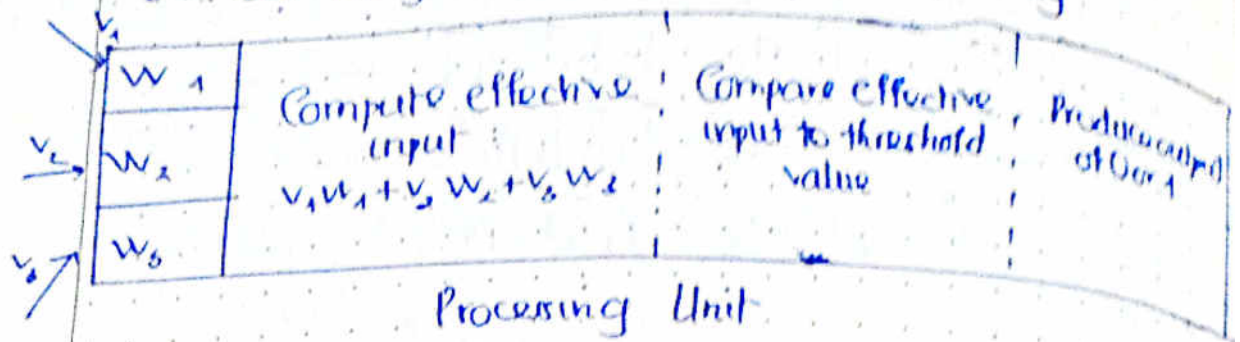 v1
W1
Compute effective
input :
v1W1+v2W2+v3W2
Compare effective
input to threshold
value
Produce output
of 0 or 1
v2
W2
v3
W3
Processing Unit